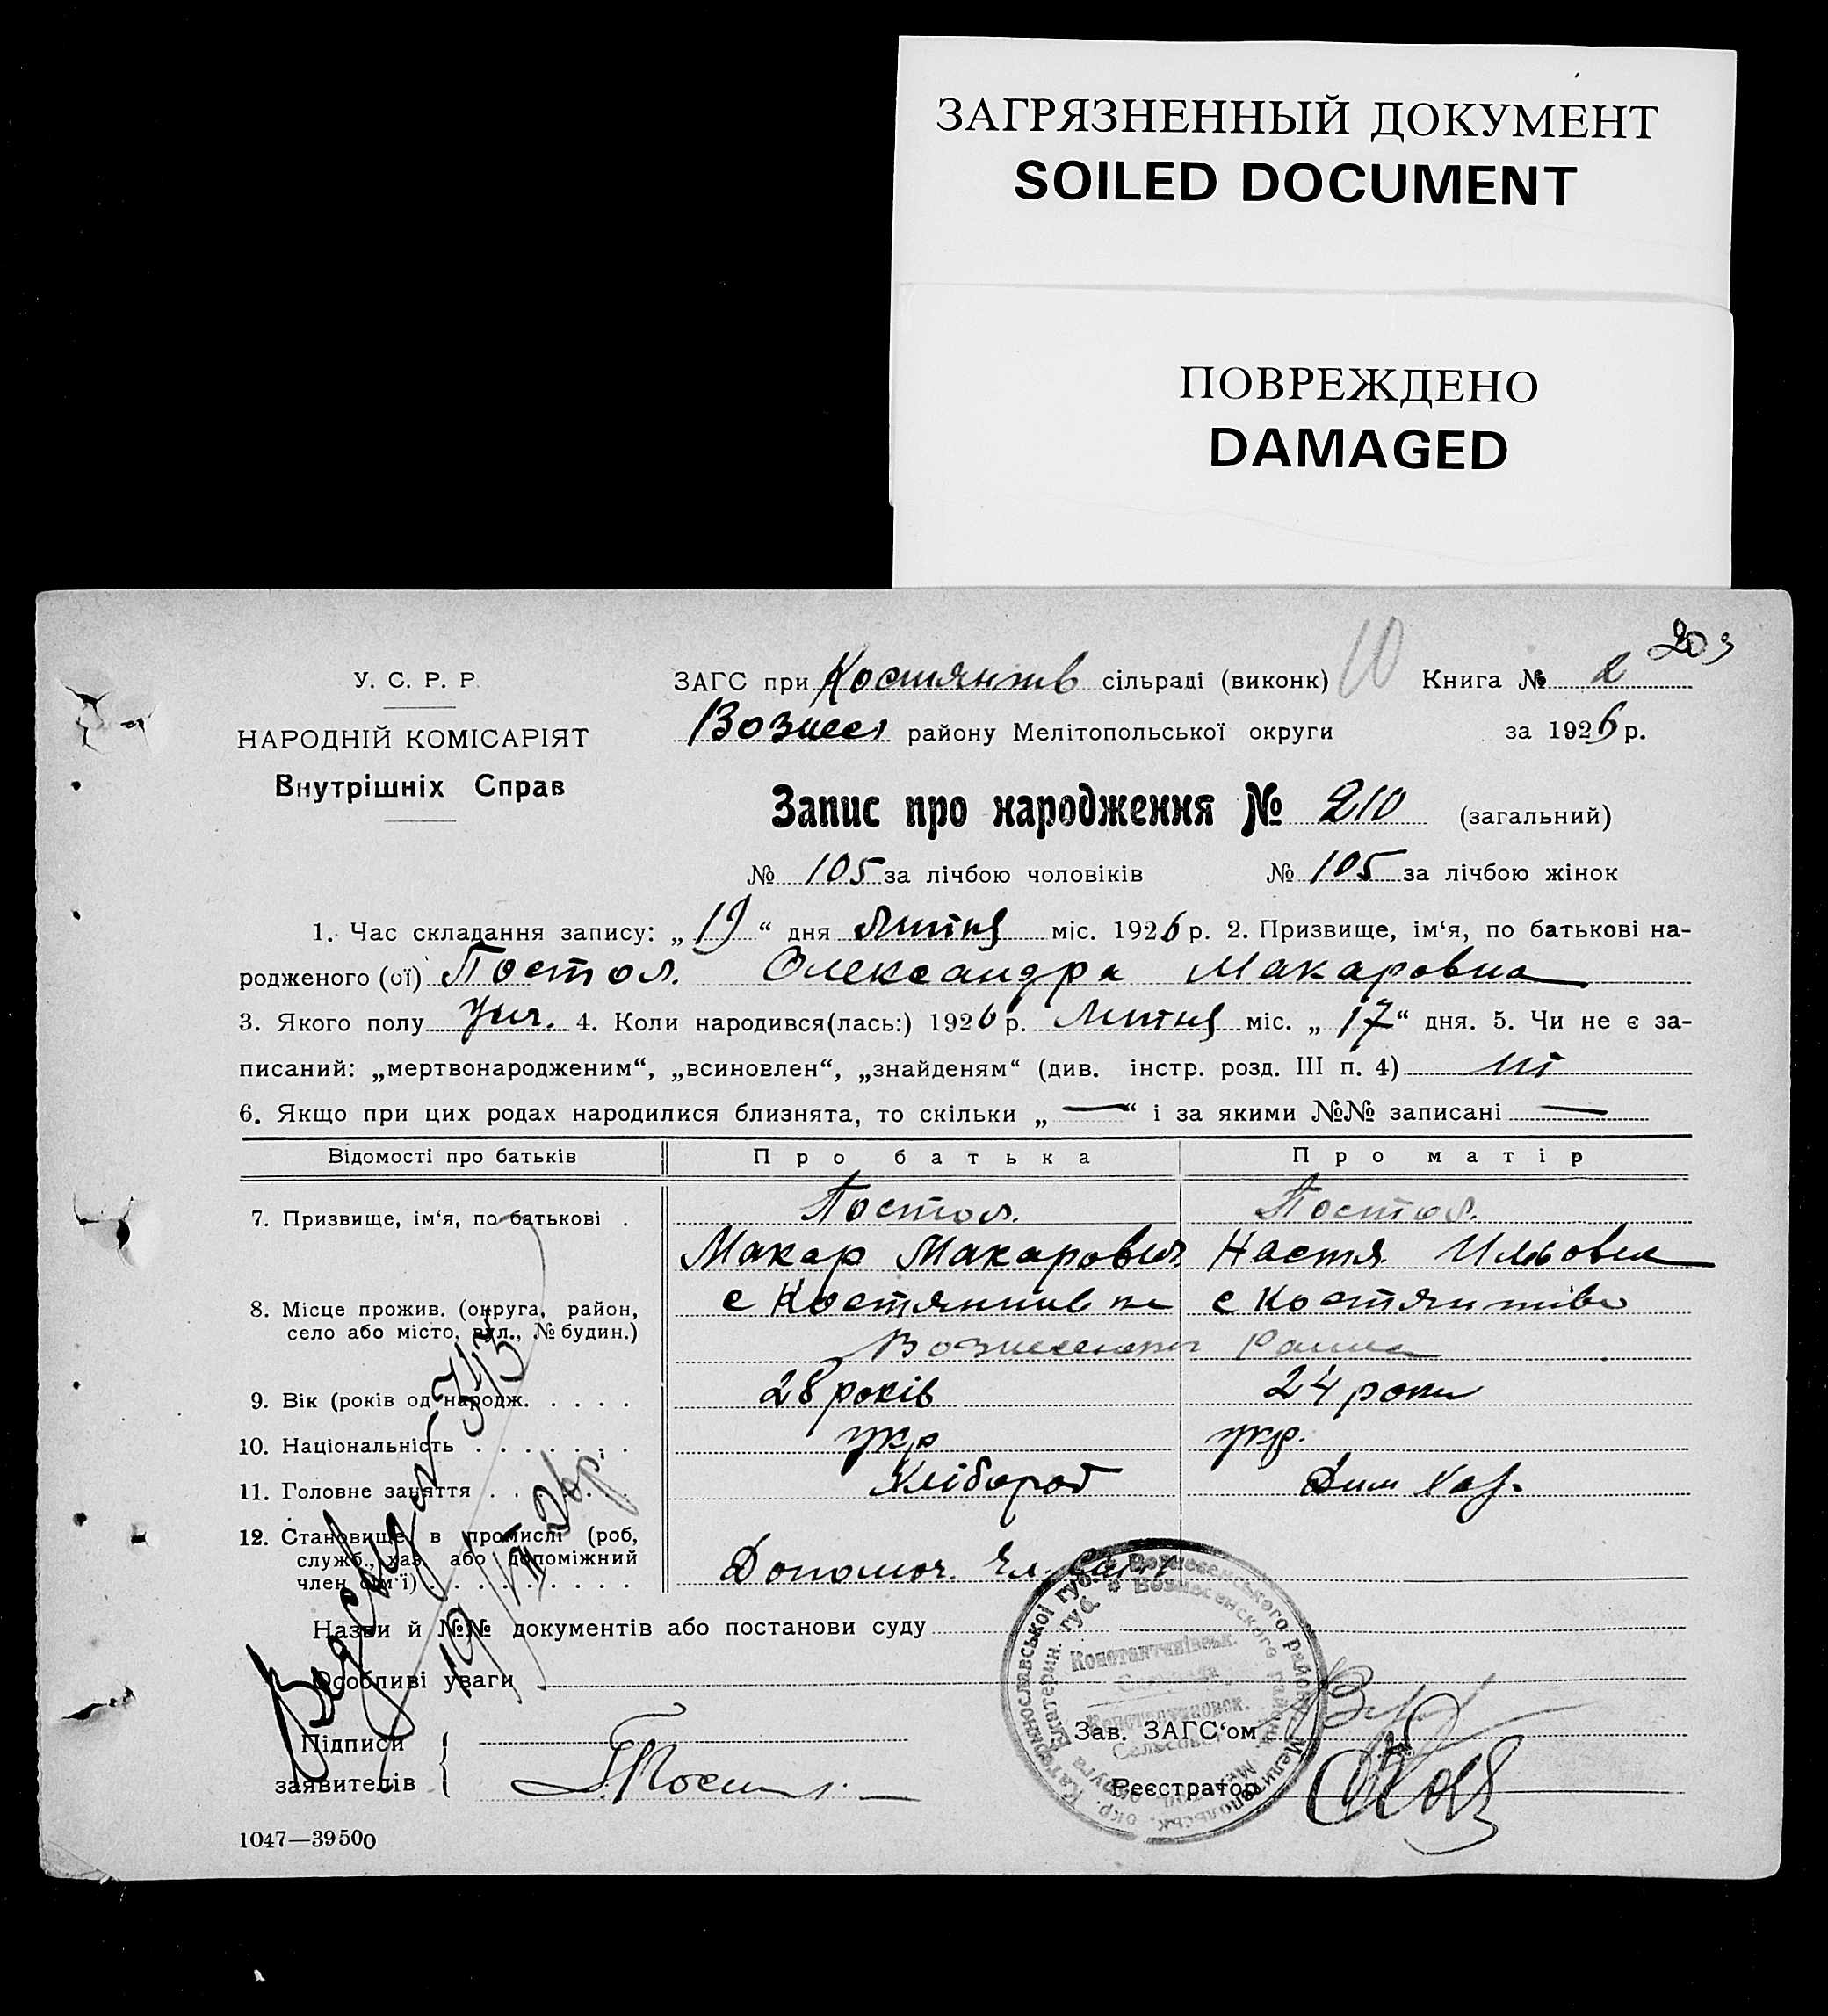 ЗАГРЯЗНЕННЫЙ ДОКУМЕНТ
SOILED DOCUMENT
ПОВРЕЖДЕНО
DAMAGED
203
У. С. Р. Р.
НАРОДНІЙ КОМІСАРІЯТ
Внутрішніх Справ
ЗАГС при Костянтів сільраді (виконк) 10 Книга № 2
Вознес району Мелітопольської округи за 1926 р.
Запис про народження № 210 (загальний)
№ 105 за лічбою чоловіків № 105 за лічбою жінок
1. Час складання запису: „19“ дня Липня міс. 1926 р. 2. Призвище, ім‘я, по батькові на-
родженого (ої) Постол. Олександра Макаровна
3. Якого полу жін. 4. Коли народився(лась:) 1926 р. Липня міс. „17“ дня. 5. Чи не є за-
писаний: „мертвонародженим“, „всиновлен“, „знайденям“ (див. інстр. розд. III п. 4) ні
6. Якщо при цих родах народилися близнята, то скільки „—“ і за якими №№ записані —
Відомості про батьків Про батька Про матір
7. Призвище, ім‘я, по батькові . Постол. Постол.
Макар Макарович Настя Ильовна
8. Місце прожив. (округа, район,
село або місто, вул., № будин.)
с Костянтив ка с Костянтівк
Вознесенськ Района
9. Вік (років од народж. . . . . 28 років 24 роки
10. Національність . . . . . . . укр укр.
11. Головне заняття . . . . . . Хлібороб Дим Хаз.
12. Становище в промислі (роб,
служб., хаз. або допоміжний
член сім‘ї) . . . . . . . . . .
Допомоч. Чл. Сімї
19/VII 26 р.
Назви й №№ документів або постанови суду
Особливі уваги
Катеринославської губ. Вознесенського району Мелитопольськ. окр.
Екатерин. губ. Вознесенского района
Константинівськ.
Константиновск.
Сельсовет
Підписи
заявителів
Постол
Зав. ЗАГС‘ом
Реєстратор
1047—39500